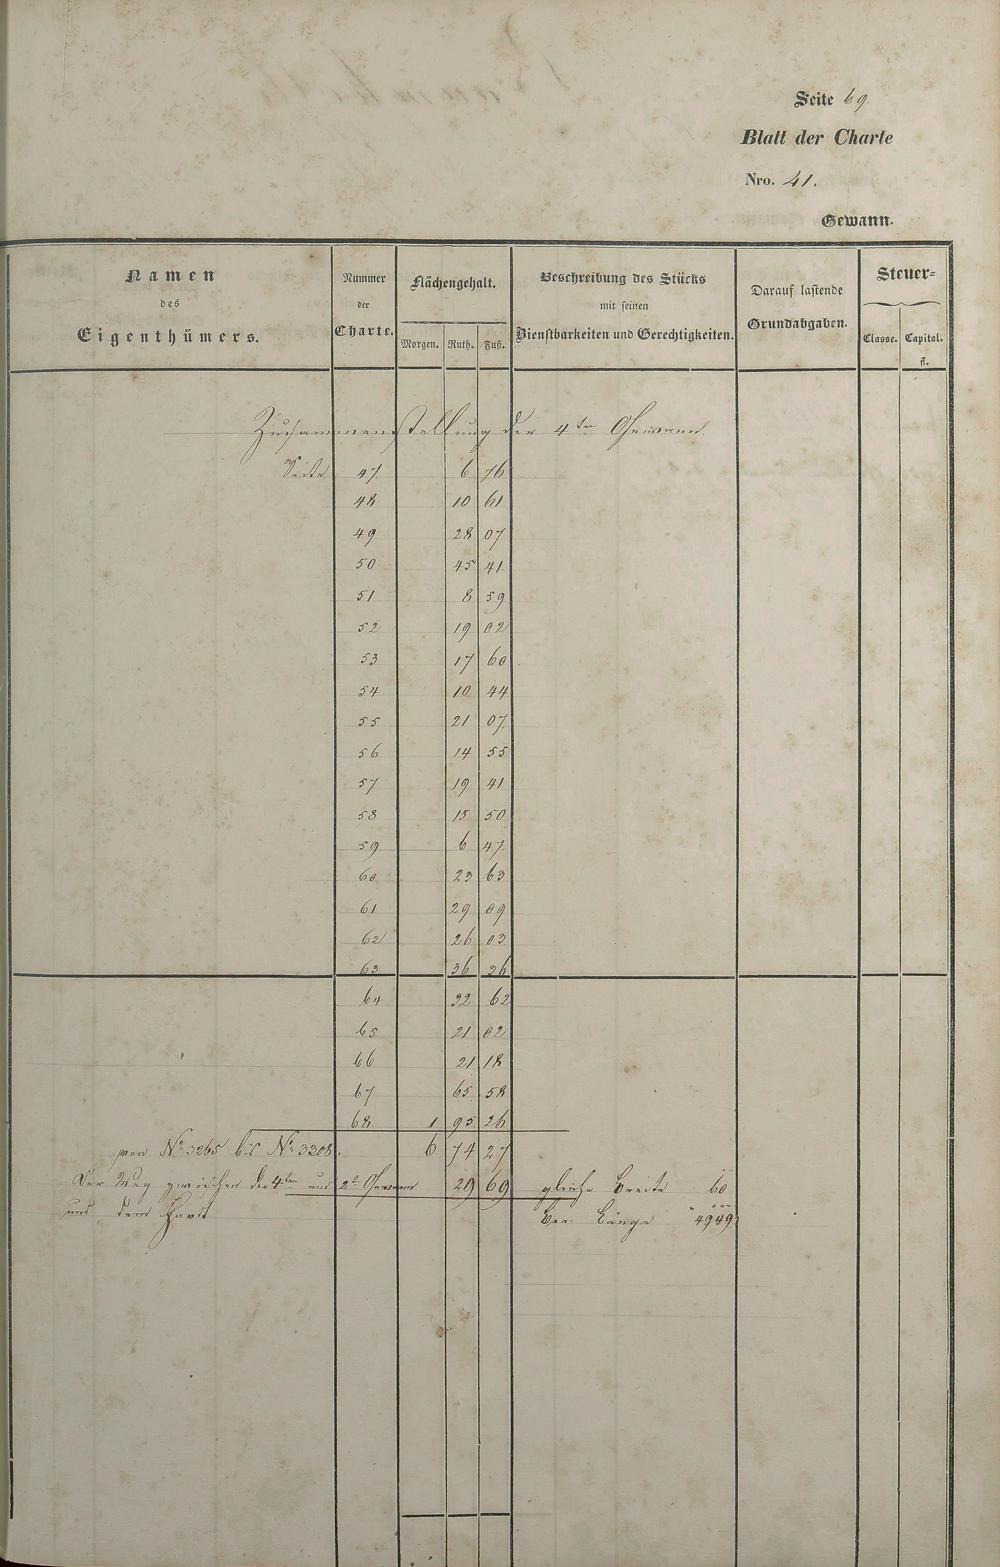 Seite 69
Blatt der Charte
Nro. 41.
Gewann.
Namen des Eigenthümers.
Nummer der Charte.
Flächengehalt.
Morgen. Ruth. Fuß.
Beschreibung des Stücks mit seinen Dienstbarkeiten und Gerechtigkeiten.
Darauf lastende Grundabgaben.
Steuer-
Classe. Capital.
fl.
Zusammenstellung der 4ten Gewann
Seite 47 6 76
48 10 61
49 28 07
50 45 41
51 8 59
52 19 02
53 17 60
54 10 44
55 21 07
56 14 55
57 19 41
58 15 50
59 6 47
60 23 63
61 29 09
62 26 03
63 36 26
64 32 62
65 21 02
66 21 18
67 65 58
68 1 95 26
von No. 3265 bis No. 3308. 6 74 27
Der Weg zwischen der 4ten und 2t Gewann 29 69 gleiche Breite 60
und dem Ber. Länge 4949